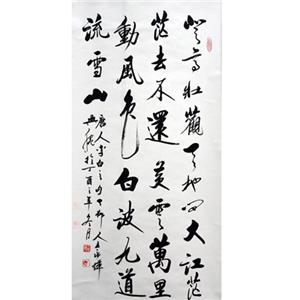 登高壯觀天地間大江茫
茫去不還黃雲萬里
動風色白波九道
流雪山
唐人李白之句
於丁酉之年冬月